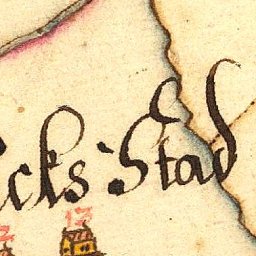 cks Stad
13